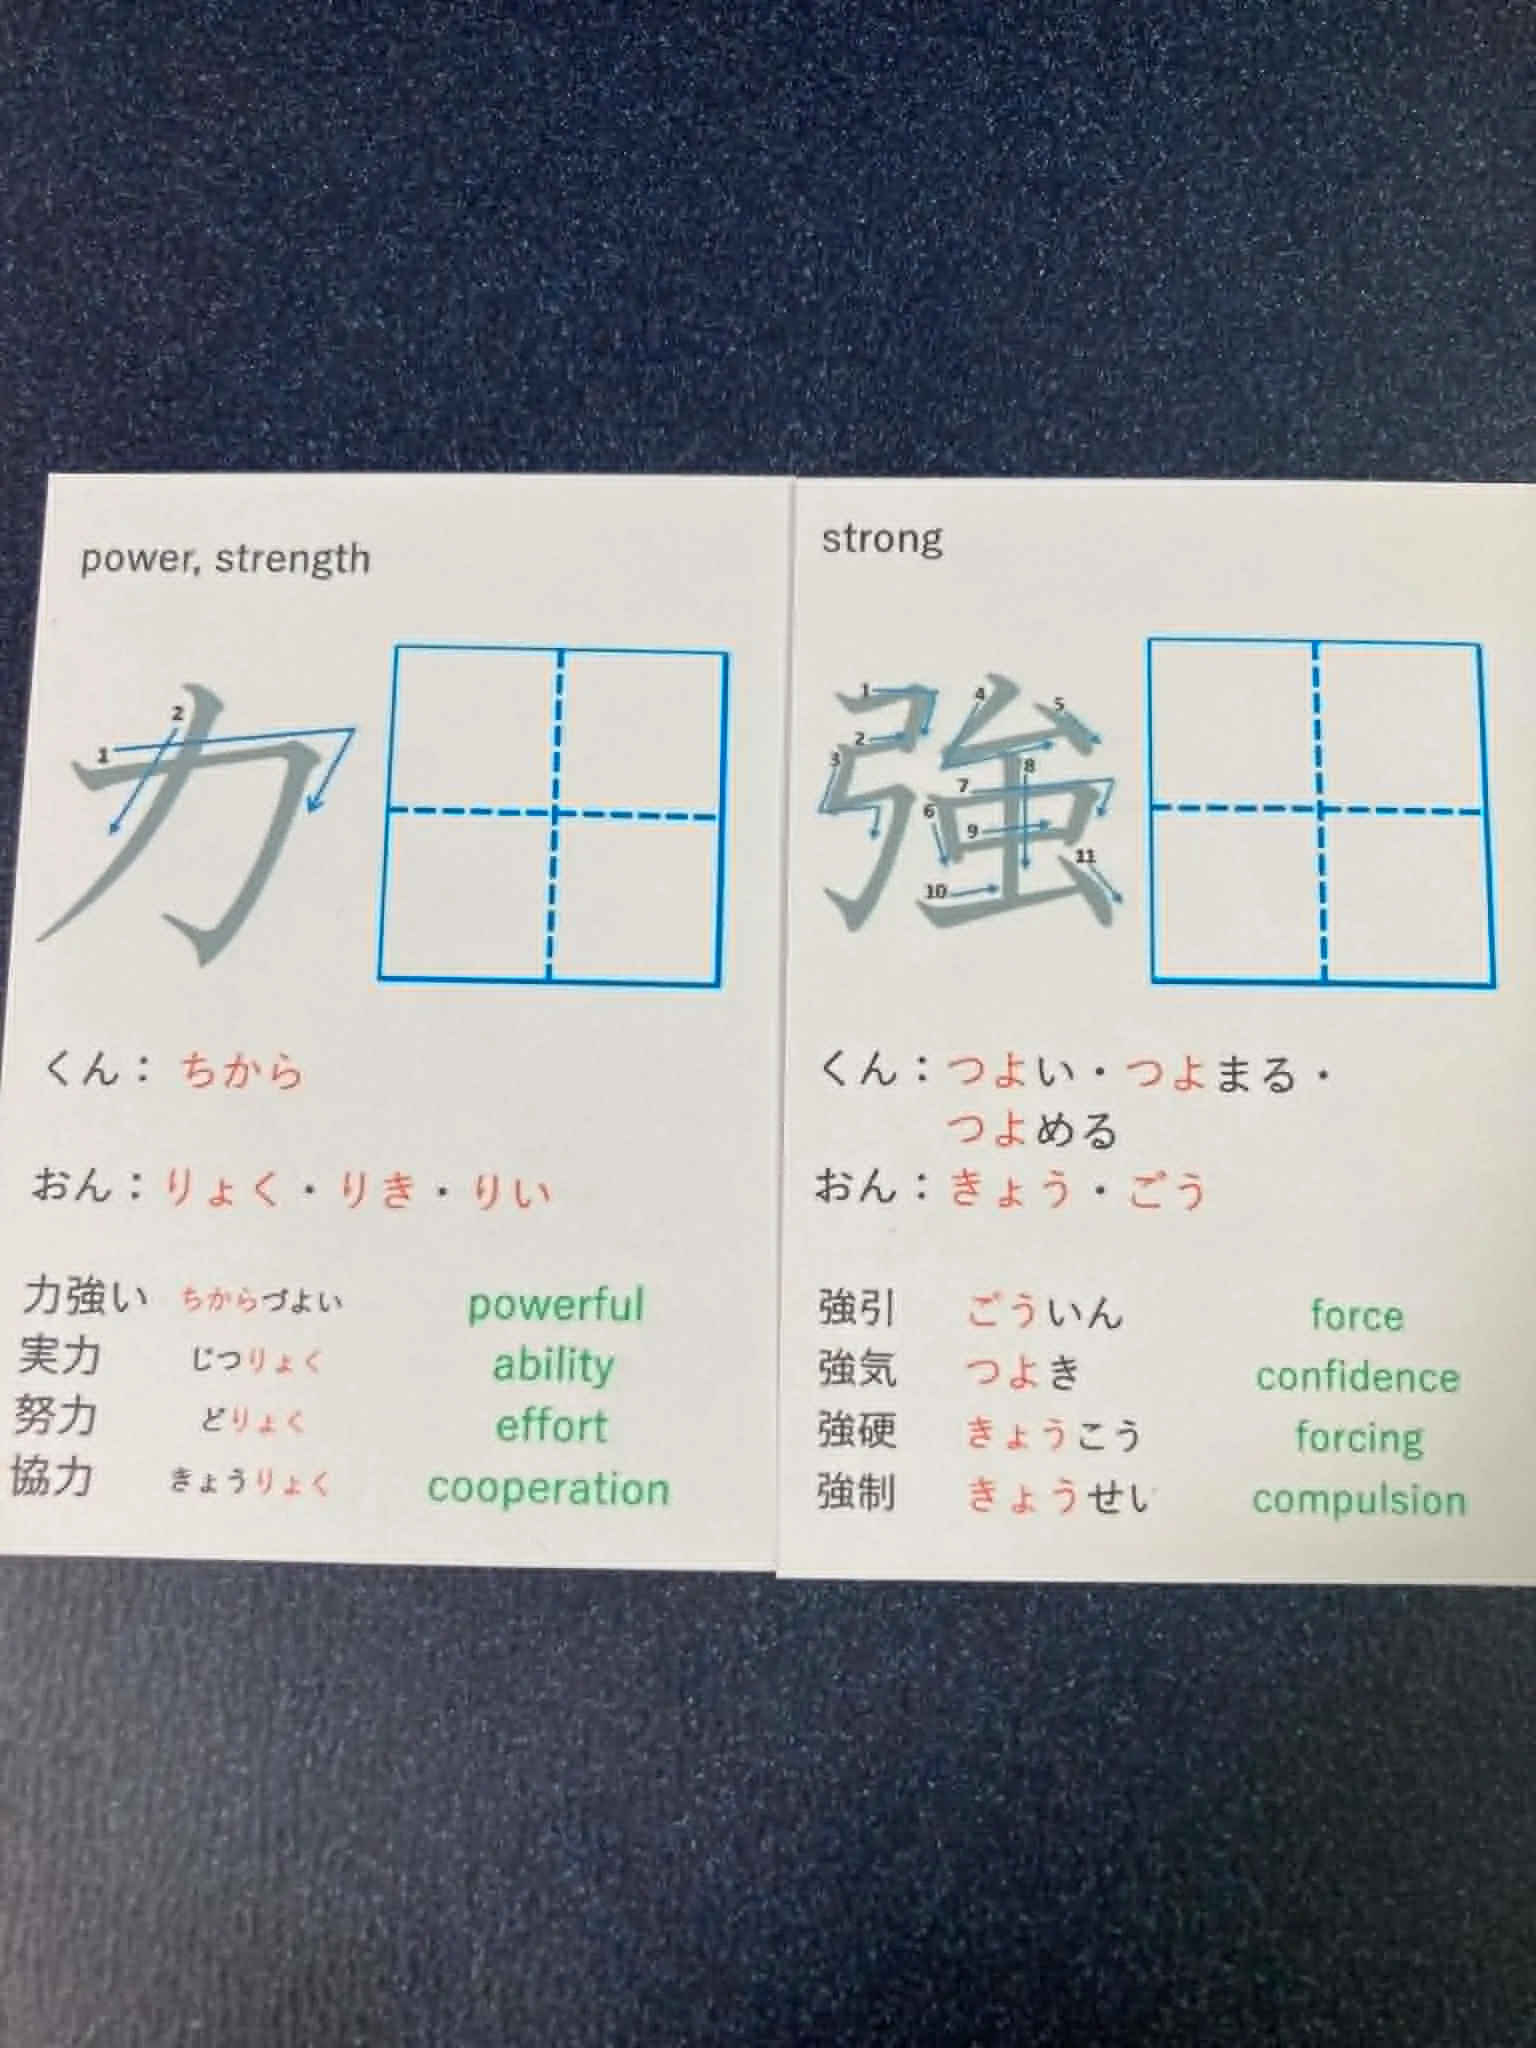 power, strength
力
1
2
くん： ちから
おん：りょく・りき・りい
力強い ちからづよい powerful
実力 じつりょく ability
努力 どりょく effort
協力 きょうりょく cooperation
strong
強
1
2
3
4
5
6
7
8
9
10
11
くん：つよい・つよまる・
つよめる
おん：きょう・ごう
強引 ごういん force
強気 つよき confidence
強硬 きょうこう forcing
強制 きょうせい compulsion